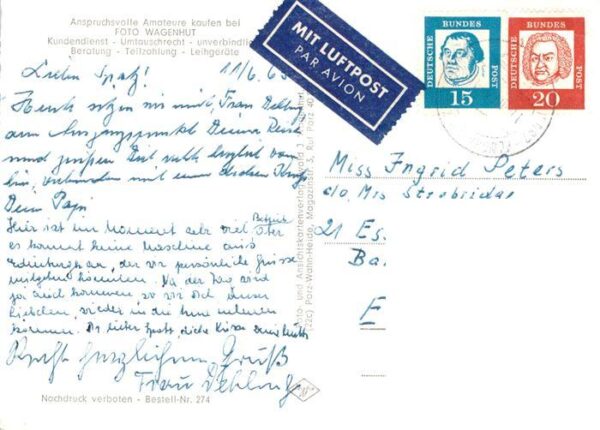 Anspruchsvolle Amateure kaufen bei
FOTO WAGENHUT
Kundendienst - Umtauschrecht - unverbindliche
Beratung - Teilzahlung - Leihgeräte
MIT LUFTPOST
PAR AVION
DEUTSCHE BUNDES POST
15
DEUTSCHE BUNDES POST
20
Lieben Spatz! 11/6.63
Heute sitzen wir mit Frau Dehling
am Ausgangspunkt Deiner Reise
und grüßen Dich recht herzlich von
hier, verbunden mit einem dicken Kuß
Dein Papi
Hier ist im Moment sehr viel Betrieb
es kommt keine Maschine aus
der wir persönliche Grüsse
mitgeben könnten. Na der Tag wird
ja auch kommen wo wir Dich unser
Liebchen, wieder in die Arme nehmen
können.
Recht herzlichen Gruß
Frau Dehling
Miss Ingrid Peters
c/o. Mrs
21 Es.
Ba.
E
Foto- und Ansichtskartenverlag
(22c) Porz-Wahn-Heide, Magazinstr. 3, Ruf Porz 40
Nachdruck verboten - Bestell-Nr. 274